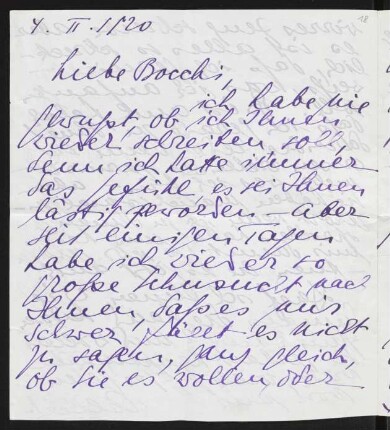 18
4. II. 1920
Liebe Bocchi,
ich habe nie
gewusst, ob ich Ihnen
wieder schreiben soll,
denn ich hatte immer
das Gefühl es sei Ihnen
lästig geworden – aber
seit einigen Tagen
habe ich wieder so
große Sehnsucht nach
Ihnen, daß es mir
schwer fällt es nicht
zu sagen, ganz gleich,
ob Sie es wollen oder